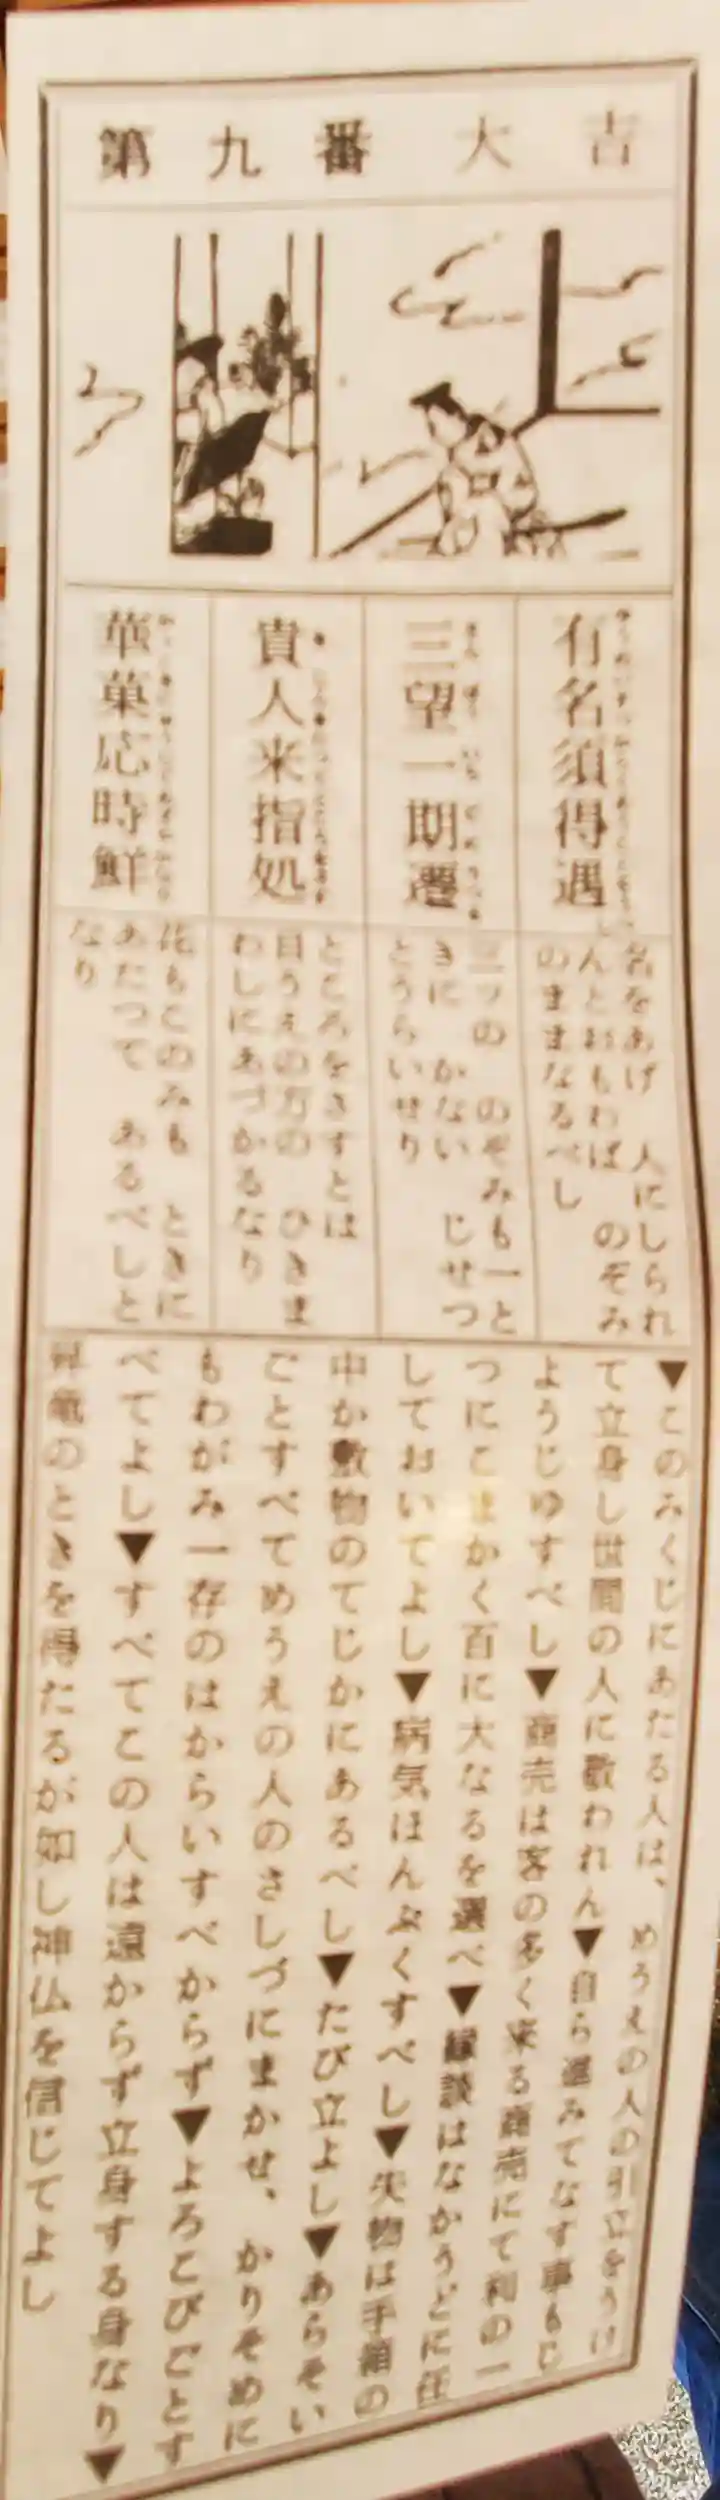 第九番 大吉
有名須得遇
名をあげ 人にしられ
んとおもわば のぞみ
のままなるべし
三望一期遷
三ツの のぞみも一と
きに かない じせつ
とうらいせり
貴人来指処
ところをさすとは
目うえの方の ひきま
わしにあづかるなり
華菓応時鮮
花もこのみも ときに
あたつて あるべしと
なり
▼このみくじにあたる人は、めうえの人の引立をうけ
て立身し世間の人に敬われん▼自ら進みてなす事もじ
ようじゆすべし▼商売は客の多く来る商売にて利の一
つにこまかく百に大なるを選べ▼縁談はなかうどに任
しておいてよし▼病気ほんぷくすべし▼失物は手箱の
中か敷物のてじかにあるべし▼たび立よし▼あらそい
ごとすべてめうえの人のさしづにまかせ、かりそめに
もわがみ一存のはからいすべからず▼よろこびごとす
べてよし▼すべてこの人は遠からず立身する身なり▼
昇竜のときを得たるが如し神仏を信じてよし